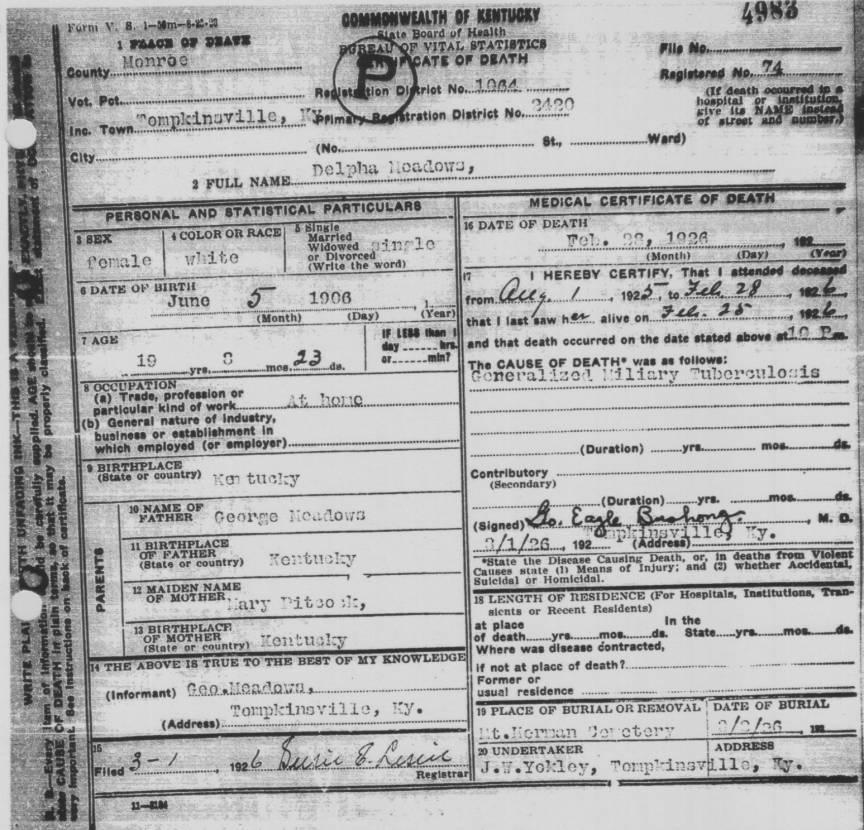 Form V. S. 1-50m-8-25-23
COMMONWEALTH OF KENTUCKY
4983
State Board of Health
1 PLACE OF DEATH
BUREAU OF VITAL STATISTICS
File No.
County Monroe
CERTIFICATE OF DEATH
P
Registered No. 74
Vot. Pct.
Registration District No. 1064
(If death occurred in a hospital or institution, give its NAME instead of street and number.)
Inc. Town Tompkinsville, Ky.
Primary Registration District No. 2420
City
(No. St., Ward)
2 FULL NAME Delpha Meadows,
PERSONAL AND STATISTICAL PARTICULARS
3 SEX
female
4 COLOR OR RACE
white
5 Single
Married
Widowed
or Divorced
(Write the word)
single
6 DATE OF BIRTH
June 5 1906
(Month) (Day) (Year)
7 AGE
19 yrs. 8 mos. 23 ds.
IF LESS than 1
day hrs.
or min?
8 OCCUPATION
(a) Trade, profession or
particular kind of work At home
(b) General nature of industry,
business or establishment in
which employed (or employer)
9 BIRTHPLACE
(State or country) Kentucky
PARENTS
10 NAME OF
FATHER George Meadows
11 BIRTHPLACE
OF FATHER
(State or country) Kentucky
12 MAIDEN NAME
OF MOTHER Mary Pitcock,
13 BIRTHPLACE
OF MOTHER
(State or country) Kentucky
14 THE ABOVE IS TRUE TO THE BEST OF MY KNOWLEDGE
(Informant) Geo.Meadows,
Tompkinsville, Ky.
(Address)
15
Filed 3-1, 1926
Registrar
11-3184
MEDICAL CERTIFICATE OF DEATH
16 DATE OF DEATH
Feb. 28, 1926 , 192
(Month) (Day) (Year)
17 I HEREBY CERTIFY, That I attended deceased
from Aug. 1, 1925, to Feb. 28, 1926
that I last saw her alive on Feb. 25, 1926
and that death occurred on the date stated above at 10 P m.
The CAUSE OF DEATH* was as follows:
Generalized Miliary Tuberculosis
(Duration) yrs. mos. ds.
Contributory
(Secondary)
(Duration) yrs. mos. ds.
(Signed) Eagle Bushong, M. D.
Tompkinsville, Ky.
3/1/26, 192 (Address)
*State the Disease Causing Death, or, in deaths from Violent
Causes state (1) Means of Injury; and (2) whether Accidental,
Suicidal or Homicidal.
18 LENGTH OF RESIDENCE (For Hospitals, Institutions, Transients or Recent Residents)
at place In the
of death yrs. mos. ds. State yrs. mos. ds.
Where was disease contracted,
if not at place of death?
Former or
usual residence
19 PLACE OF BURIAL OR REMOVAL
Mt.Herman Cemetery
DATE OF BURIAL
3/2/26 , 192
20 UNDERTAKER
J.W.Yokley, Tompkinsville, Ky.
ADDRESS